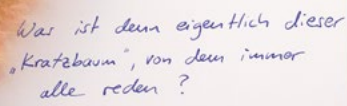 Was ist denn eigentlich dieser
„Kratzbaum", von dem immer
alle reden ?